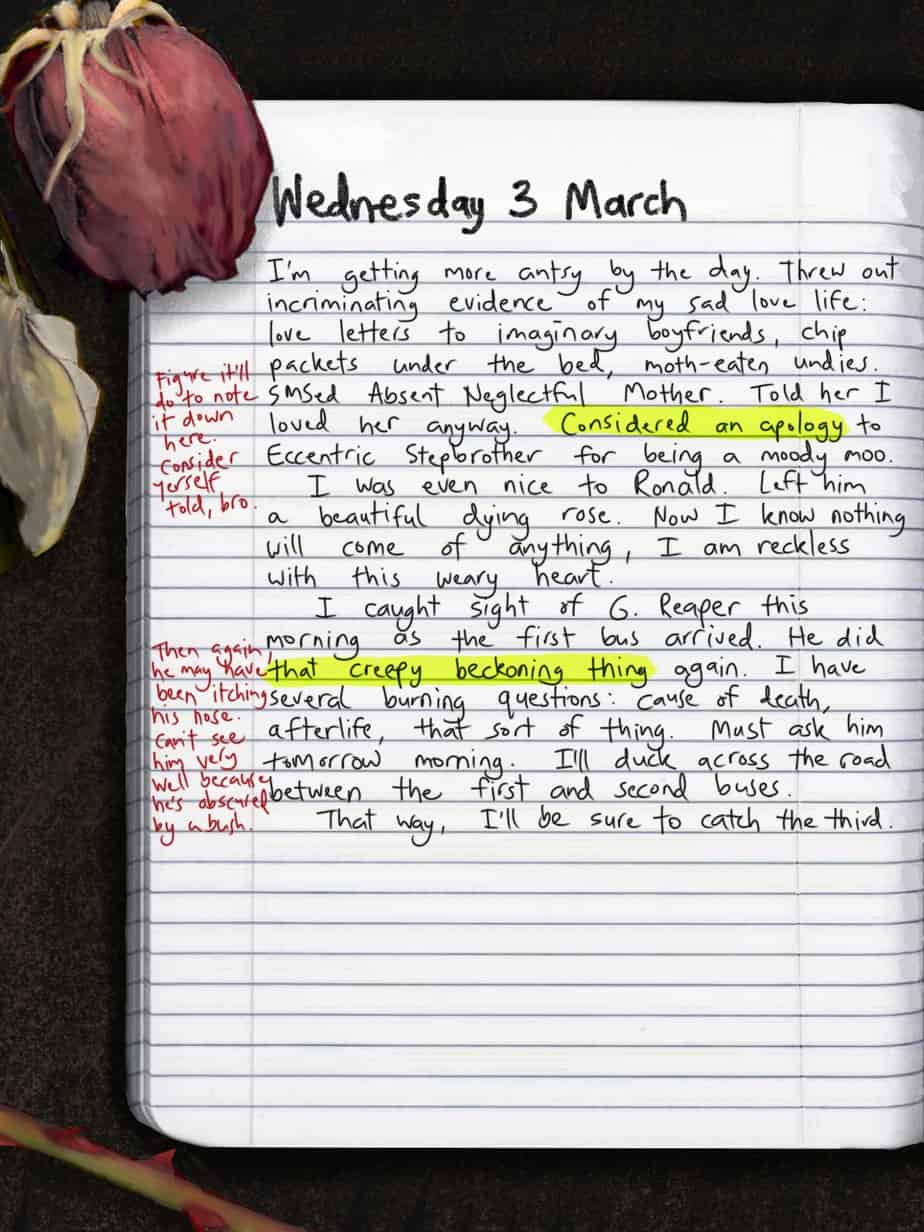 Wednesday 3 March
I'm getting more antsy by the day. Threw out
incriminating evidence of my sad love life:
love letters to imaginary boyfriends, chip
packets under the bed, moth-eaten undies.
SMSed Absent Neglectful Mother. Told her I
loved her anyway. Considered an apology to
Eccentric Stepbrother for being a moody moo.
I was even nice to Ronald. Left him
a beautiful dying rose. Now I know nothing
will come of anything, I am reckless
with this weary heart.
I caught sight of G. Reaper this
morning as the first bus arrived. He did
that creepy beckoning thing again. I have
several burning questions: cause of death,
afterlife, that sort of thing. Must ask him
tomorrow morning. I'll duck across the road
between the first and second buses.
That way, I'll be sure to catch the third.
Figure it'll
do to note
it down
here.
Consider
yerself
told, bro.
Then again,
he may have
been itching
his nose.
Can't see
him very
well because
he's obscured
by a bush.